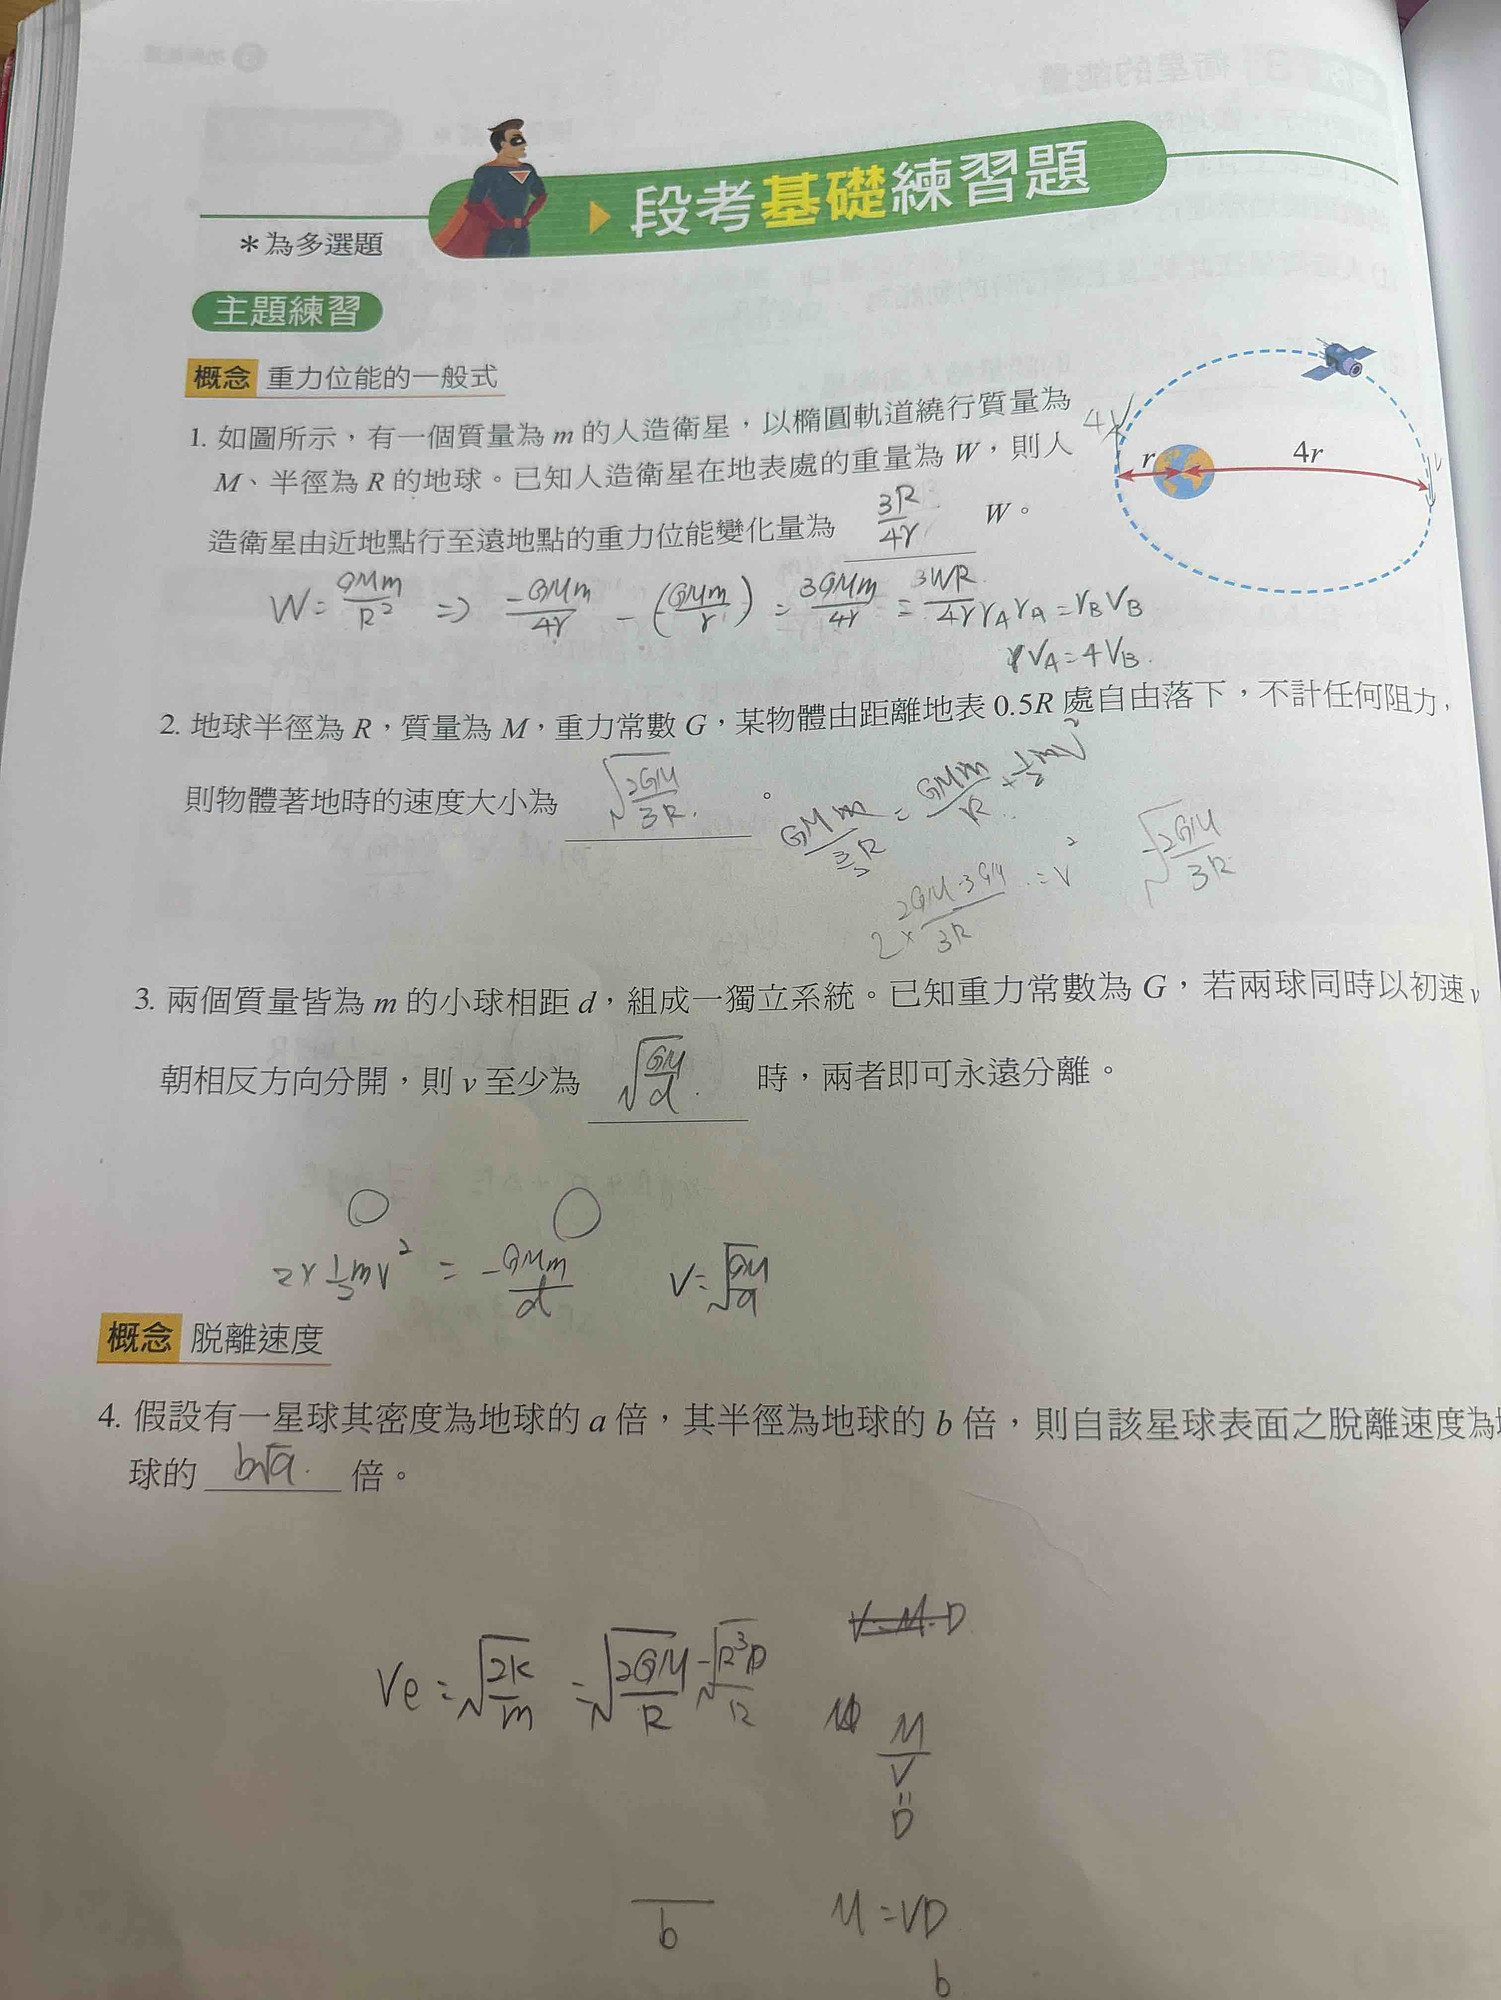 段考基礎練習題
＊為多選題
主題練習
概念 重力位能的一般式
1. 如圖所示，有一個質量為 m 的人造衛星，以橢圓軌道繞行質量為
M、半徑為 R 的地球。已知人造衛星在地表處的重量為 W，則人
造衛星由近地點行至遠地點的重力位能變化量為 3R/4r W。
r 4r
W = GMm/R² => -GMm/4r - (GMm/r) = 3GMm/4r = 3WR/4r
rA rA = rB VB
rVA = 4VB.
2. 地球半徑為 R，質量為 M，重力常數 G，某物體由距離地表 0.5R 處自由落下，不計任何阻力，
則物體著地時的速度大小為 √(2GM/3R) 。
GMm/(3/2 R) = GMm/R + 1/2 mv²
2 × (2GM-3GM)/3R = v² √(2GM/3R)
3. 兩個質量皆為 m 的小球相距 d，組成一獨立系統。已知重力常數為 G，若兩球同時以初速 v
朝相反方向分開，則 v 至少為 √(GM/d) 時，兩者即可永遠分離。
2 × 1/2 mv² = -GMm/d V = √(GM/d)
概念 脫離速度
4. 假設有一星球其密度為地球的 a 倍，其半徑為地球的 b 倍，則自該星球表面之脫離速度為
球的 b√a 倍。
V=M·D
Ve = √(2K/m) = √(2GM/R) √(R³D/R)
M/V = D
b
M = VD
b